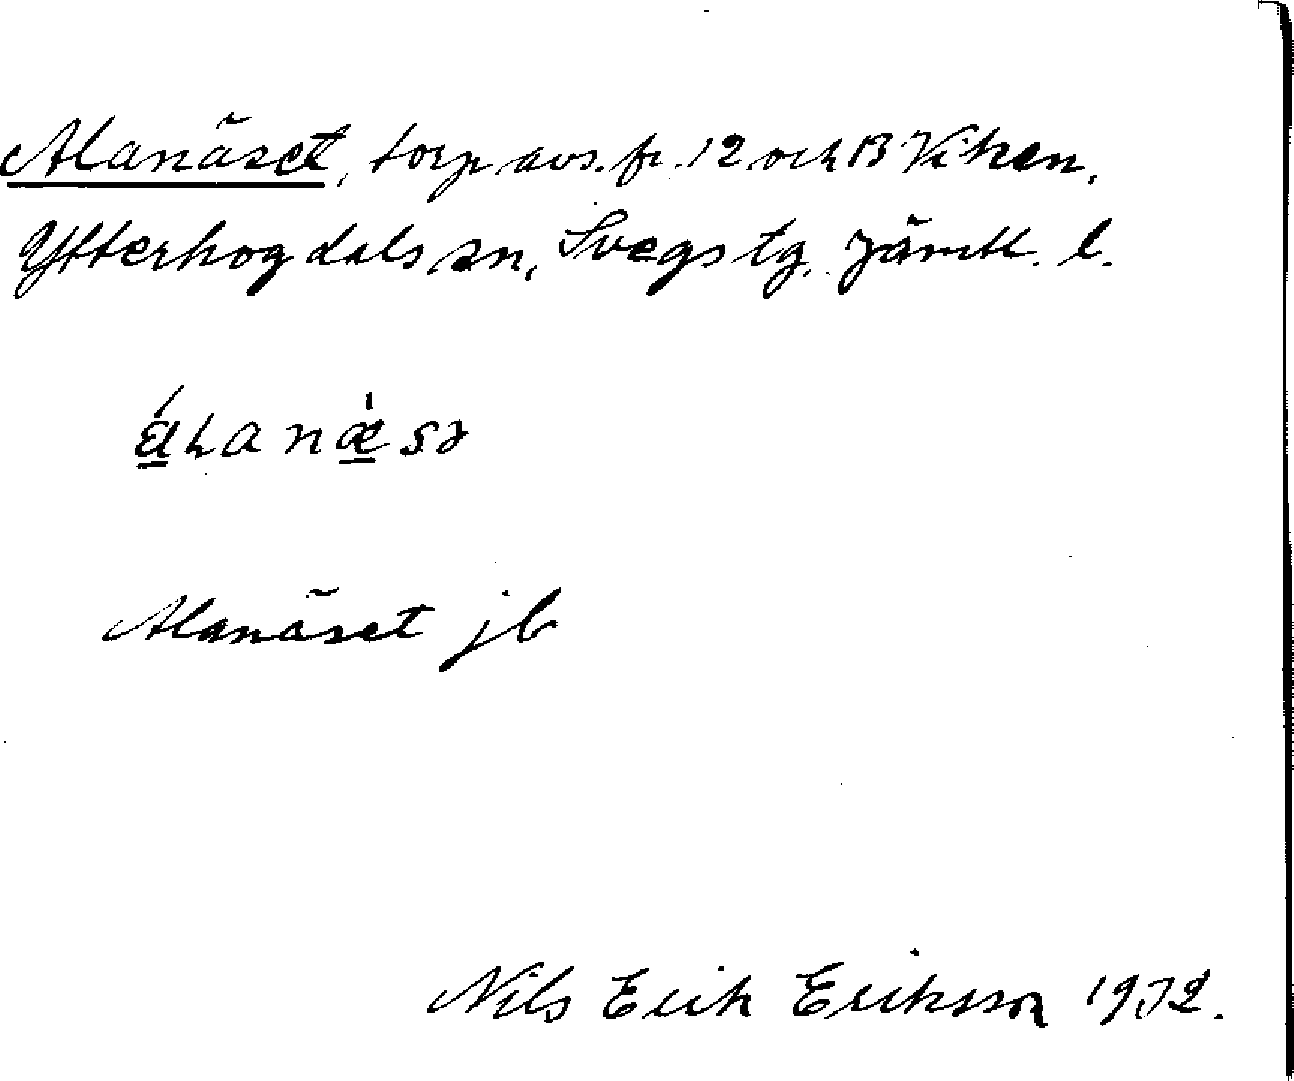 Alanäset, torp avs. fr. 12 och 13 Viken,
Ytterhogdals sn, Svegs tg. Jämtl. l.
Alanäset jb
Nils Erik Eriksson 1932.